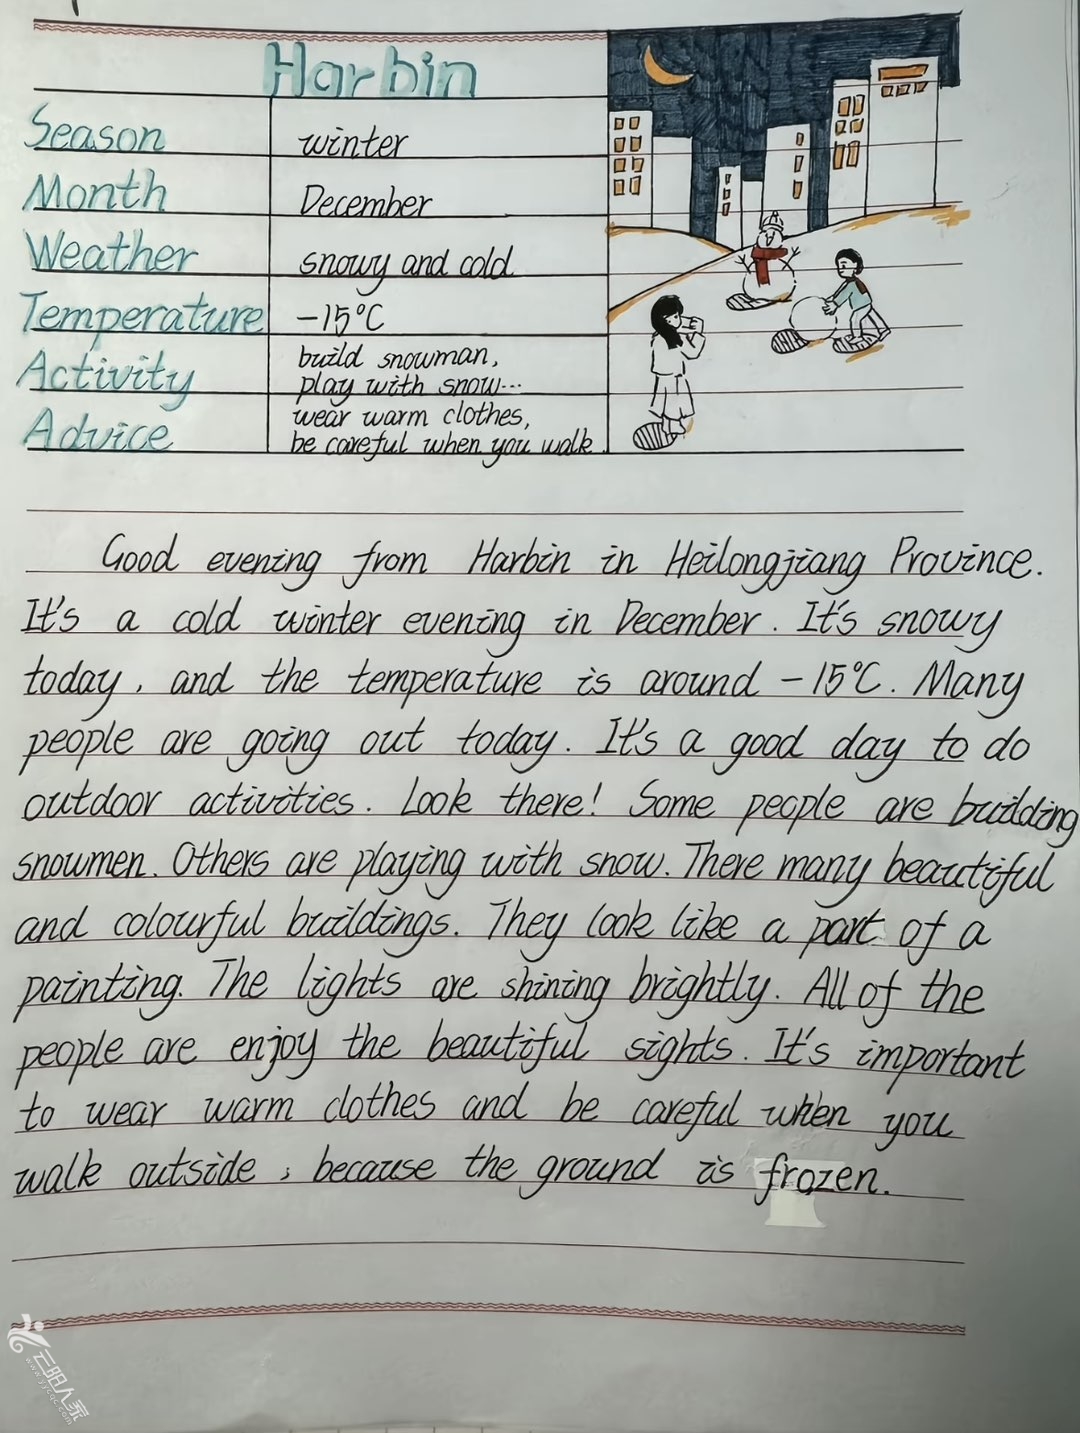 Harbin
Season winter
Month December
Weather snowy and cold
Temperature -15°C
Activity build snowman,
play with snow...
Advice wear warm clothes,
be careful when you walk.
Good evening from Harbin in Heilongjiang Province.
It's a cold winter evening in December. It's snowy
today, and the temperature is around -15°C. Many
people are going out today. It's a good day to do
outdoor activities. Look there! Some people are building
snowmen. Others are playing with snow. There many beautiful
and colourful buildings. They look like a part of a
painting. The lights are shining brightly. All of the
people are enjoy the beautiful sights. It's important
to wear warm clothes and be careful when you
walk outside, because the ground is frozen.
云阳人家
www.yycqc.com